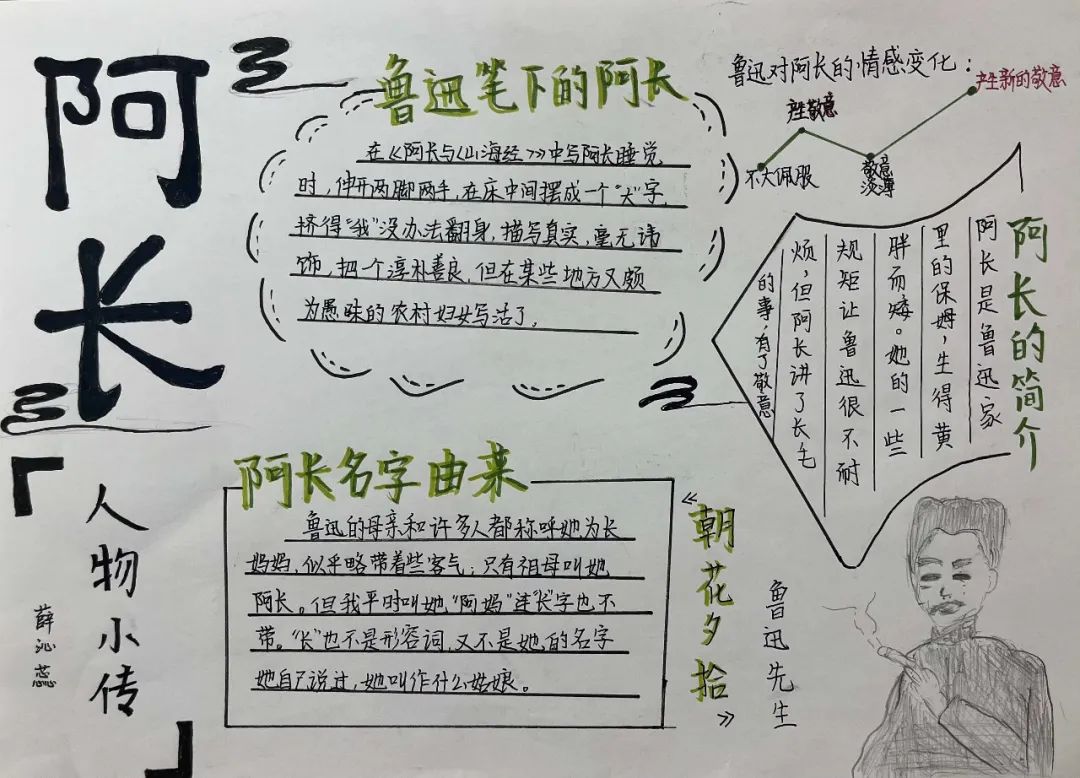 阿长
人物小传
薛沁蕊
鲁迅笔下的阿长
在《阿长与《山海经》》中写阿长睡觉
时，伸开两脚两手，在床中间摆成一个“大”字，
挤得“我”没办法翻身，描写真实，毫无讳
饰，把一个淳朴善良，但在某些地方又颇
为愚昧的农村妇女写活了。
鲁迅对阿长的情感变化：
不大佩服
产生敬意
敬意淡薄
产生新的敬意
阿长的简介
阿长是鲁迅家
里的保姆，生得黄
胖而矮。她的一些
规矩让鲁迅很不耐
烦，但阿长讲了长毛
的事，有了敬意
阿长名字由来
鲁迅的母亲和许多人都称呼她为长
妈妈，似乎略带着些客气；只有祖母叫她
阿长。但我平时叫她“阿妈”连“长”字也不
带。“长”也不是形容词，又不是她的名字
她自己说过，她叫作什么姑娘。
《朝花夕拾》
鲁迅先生